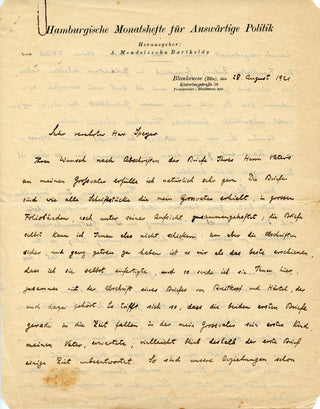 Hamburgische Monatshefte für Auswärtige Politik
Herausgeber:
A. Mendelssohn Bartholdy
Blankenese (Elbe), den 28. August 1921
Sehr verehrter Herr Speyer
Ihren Wunsch nach Abschriften der Briefe Ihres Herrn Vaters
an meinen Grossvater erfülle ich natürlich sehr gern. Die Briefe
sind wie alle Schriftstücke die mein Grossvater erhielt, in grossen
Foliobänden, noch unter seiner Aufsicht, zusammengeheftet; die Briefe
selbst kann ich Ihnen also nicht schicken. Um aber die Abschriften
sicher und ganz getreu zu haben ist es mir als das beste erschienen,
dass ich sie selbst anfertigte, und so sende ich sie Ihnen hier,
zusammen mit der Abschrift eines Briefes von Breitkopf und Härtel, der
mit dazu gehört. Es trifft sich so, dass die beiden ersten Briefe
gerade in die Zeit fallen, in der mein Grossvater sein erstes Kind,
meinen Vater, erwartete; vielleicht blieb deshalb der erste Brief
einige Zeit unbeantwortet. So sind unsere Beziehungen schon